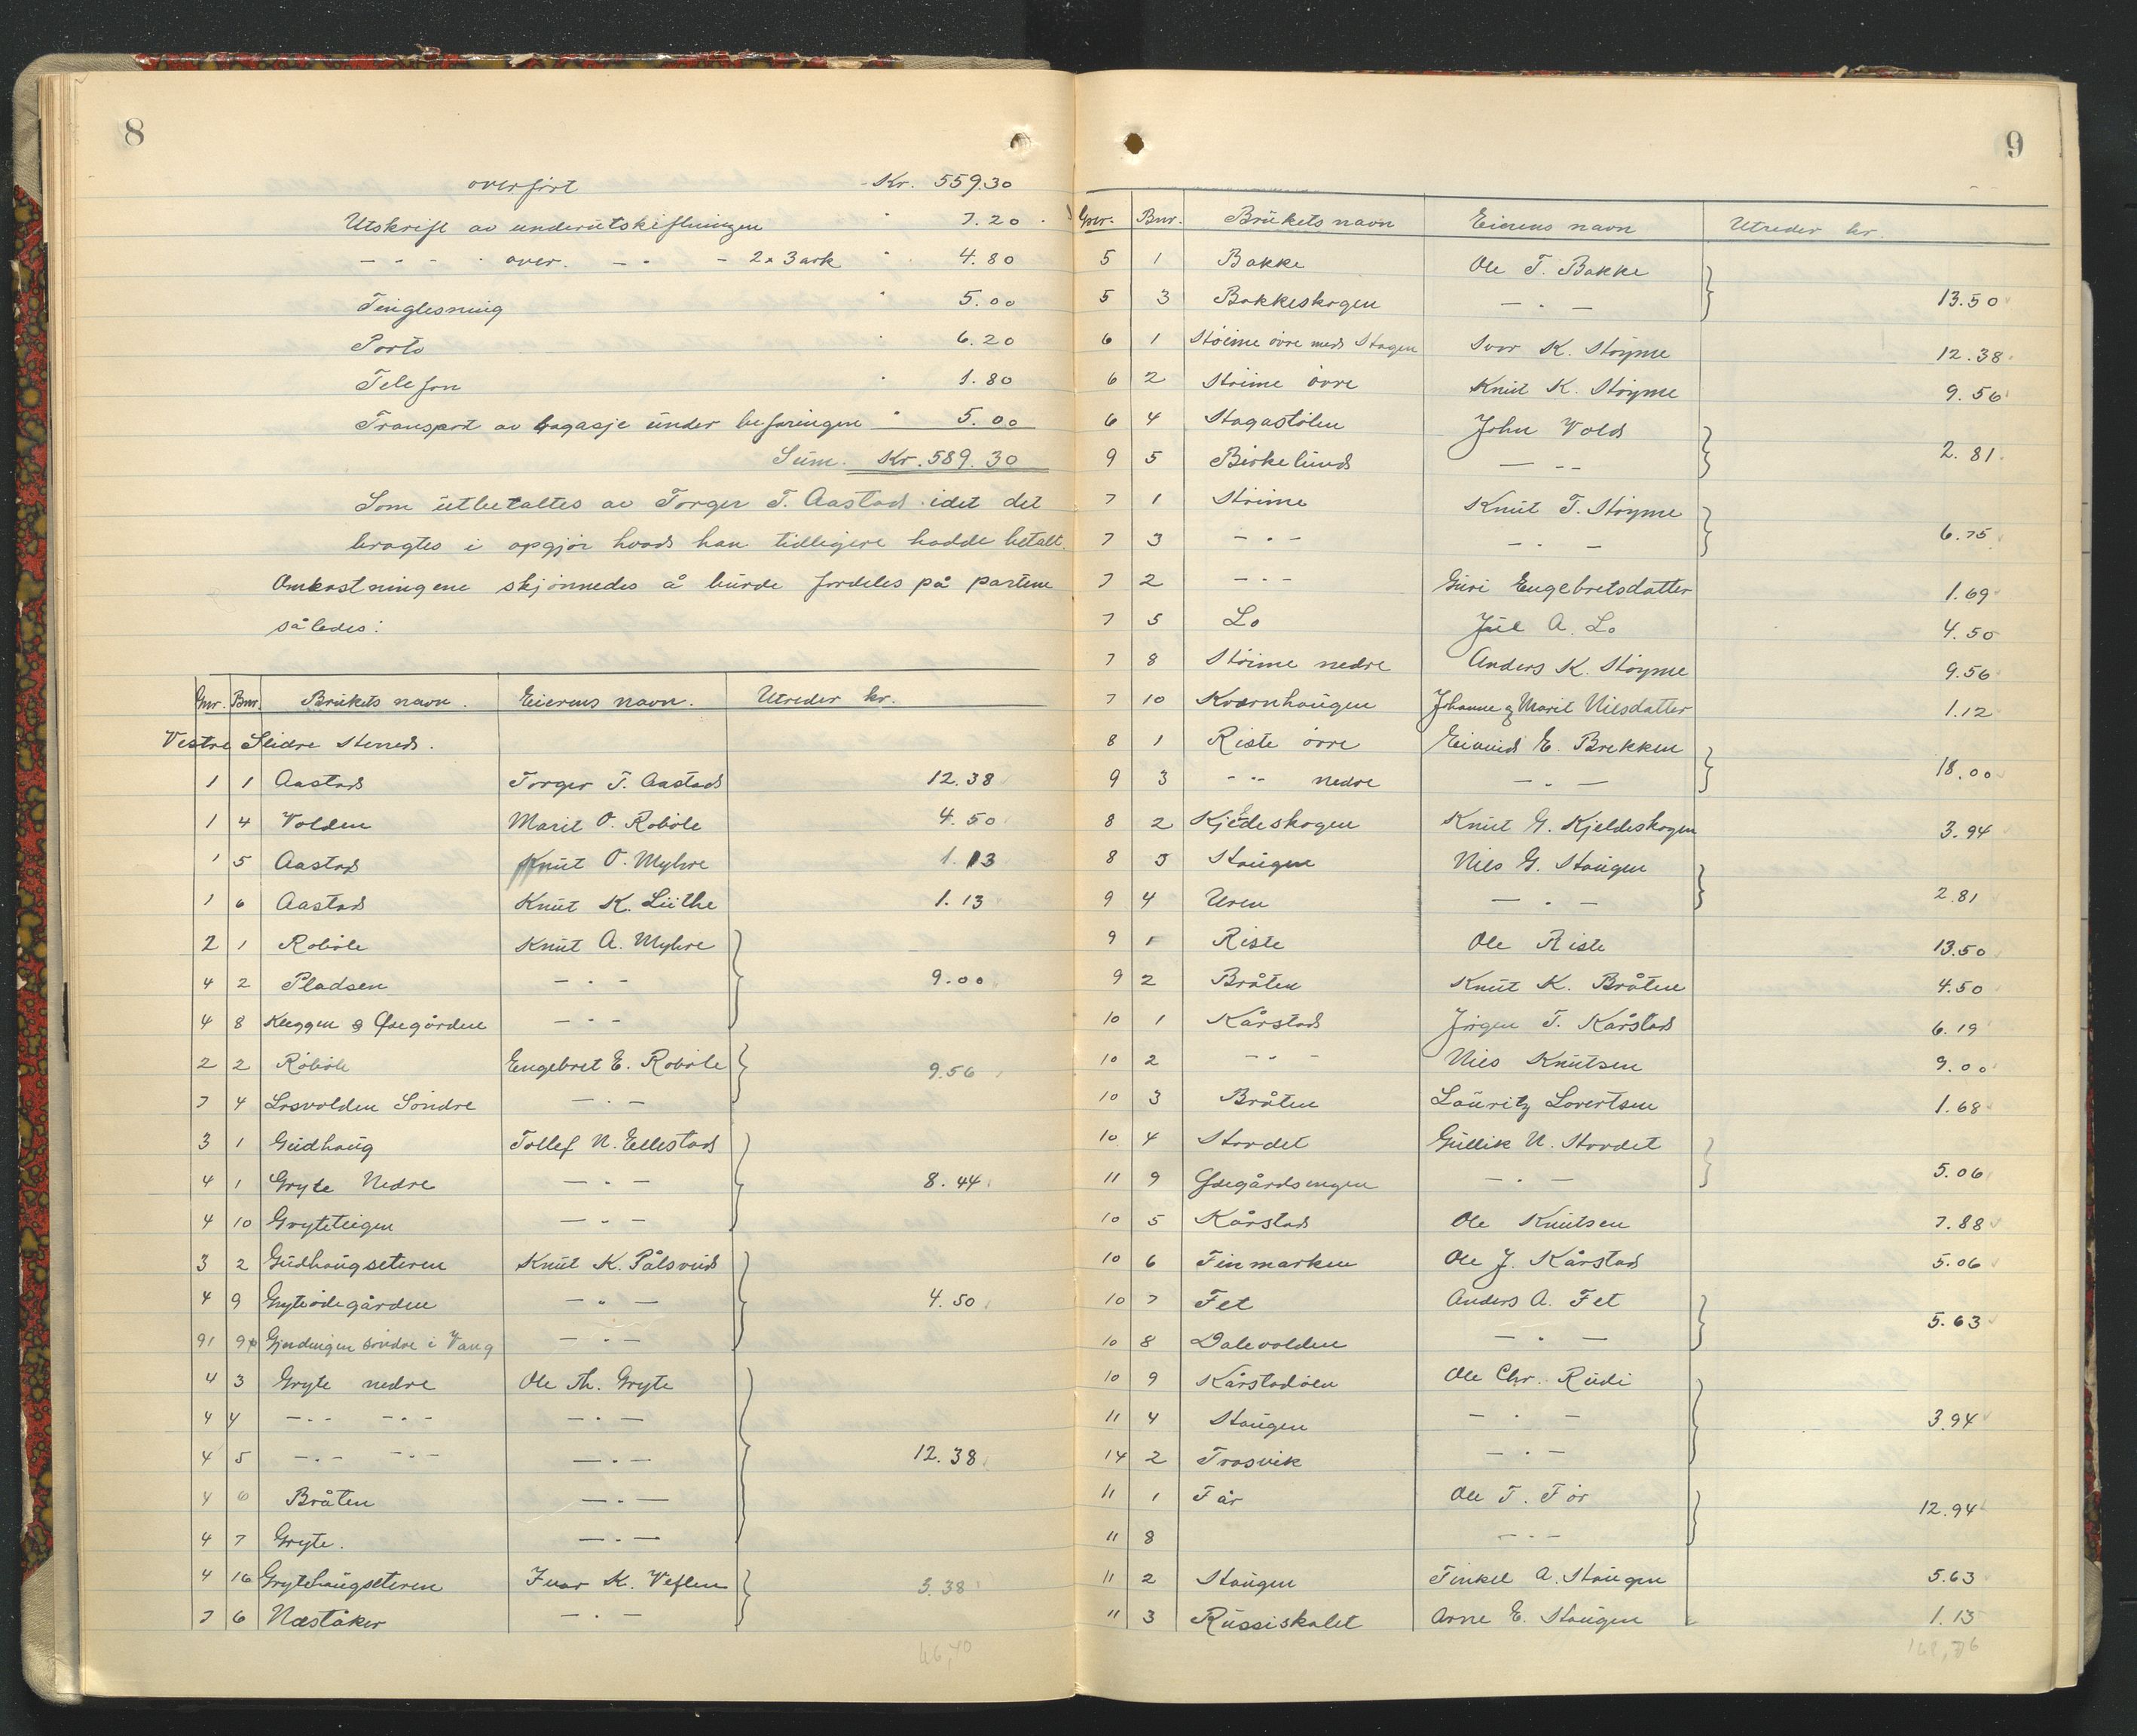 8
overført Kr. 559.30
Utskrift av underutskiftningen " 7.20
— " — over. — " — 2 x 3 ark " 4.80
Tinglesning " 5.00
Porto " 6.20
Telefon " 1.80
Transport av bagasje under befaringen " 5.00
Sum. Kr. 589.30
Som utbetaltes av Torger T. Aastad idet det
bragtes i opgjør hvad han tidligere hadde betalt.
Omkostningene skjønnedes å burde fordeles på partene
således:
Gnr. Bnr. Brukets navn. Eierens navn. Utreder kr.
Vestre Slidre Herred.
1 1 Aastad Torger T. Aastad 12.38
1 4 Volden Marit O. Robøle 4.50
1 5 Aastad Knut O. Myhre 1.13
1 6 Aastad Knut K. Lüthe 1.13
2 1 Robøle Knut A. Myhre
4 2 Pladsen — " — 9.00
4 8 Kleggen & Ødegården — " —
2 2 Robøle Engebret E. Robøle 9.56
7 4 Losvolden Søndre — " —
3 1 Gudhaug Tollef N. Ellestad
4 1 Gryte Nedre — " — 8.44
4 10 Gryteteigen — " —
3 2 Gudhaugseteren Knut K. Pålsvud
4 9 Gryteødegården — " — 4.50
91 Gjendingen søndre i Vang — " —
4 3 Gryte nedre Ole Th. Gryte
4 4 — " — — " — — " —
4 5 — " — — " — — " — 12.38
4 6 Bråten — " —
4 7 Gryte. — " —
4 16 Grytehaugseteren Ivar K. Veflen 3.38
7 6 Næståker — " —
66,40
9
Gnr. Bnr. Brukets navn Eierens navn Utreder kr.
5 1 Bakke Ole T. Bakke
5 3 Bakkeskogen — " — 13.50
6 1 Støime øvre med Stagen Ivar K. Støyme 12.38
6 2 Støime øvre Knut K. Støyme 9.56
6 4 Stagastølen John Vold
9 5 Birkelund — " — 2.81
7 1 Støime Knut T. Støyme
7 3 — " — — " — 6.75
7 2 — " — Guri Engebretsdatter 1.69
7 5 Lo Juul A. Lo 4.50
7 8 Støime nedre Anders K. Støyme 9.56
7 10 Kvarnhaugen Johanne og Marit Nilsdatter 1.12
8 1 Riste øvre Eivind E. Brekken
9 3 — " — nedre — " — 18.00
8 2 Kjeldeskogen Knut G. Kjeldeskogen 3.94
8 5 Haugen Nils G. Haugen
9 4 Uren — " — 2.81
9 1 Riste Ole Riste 13.50
9 2 Bråten Knut K. Bråten 4.50
10 1 Kårstad Jørgen T. Kårstad 6.19
10 2 — " — Nils Knutsen 9.00
10 3 Bråten Lauritz Lovertsen 1.68
10 4 Hovdet Gullik N. Hovdet
11 9 Ødegårdsengen — " — 5.06
10 5 Kårstad Ole Knutsen 7.88
10 6 Finmarken Ole J. Kårstad 5.06
10 7 Fet Anders A. Fet
10 8 Dalevolden — " — 5.63
10 9 Kårstadøen Ole Chr. Rudi
11 4 Haugen — " — 3.94
14 2 Trosvik — " —
11 1 Før Ole T. Før
11 8 — " — 12.94
11 2 Haugen Tinkel A. Haugen 5.63
11 3 Russiskalet Arne E. Haugen 1.13